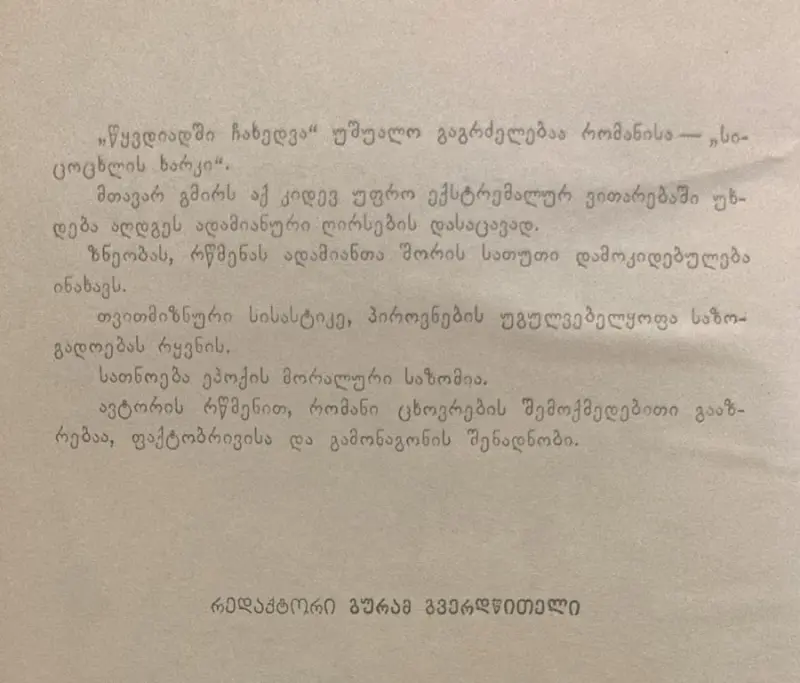 „წყვდიადში ჩახედვა“ უშუალო გაგრძელებაა რომანისა — „სი-
ცოცხლის ხარკი“.
მთავარ გმირს აქ კიდევ უფრო ექსტრემალურ ვითარებაში უხ-
დება აღდგეს ადამიანური ღირსების დასაცავად.
ზნეობას, რწმენას ადამიანთა შორის სათუთი დამოკიდებულება
ინახავს.
თვითმიზნური სისასტიკე, პიროვნების უგულვებელყოფა საზო-
გადოებას რყვნის.
სათნოება ეპოქის მორალური საზომია.
ავტორის რწმენით, რომანი ცხოვრების შემოქმედებითი გააზ-
რებაა, ფაქტობრივისა და გამონაგონის შენადნობი.
რედაქტორი გურამ გვერდწითელი